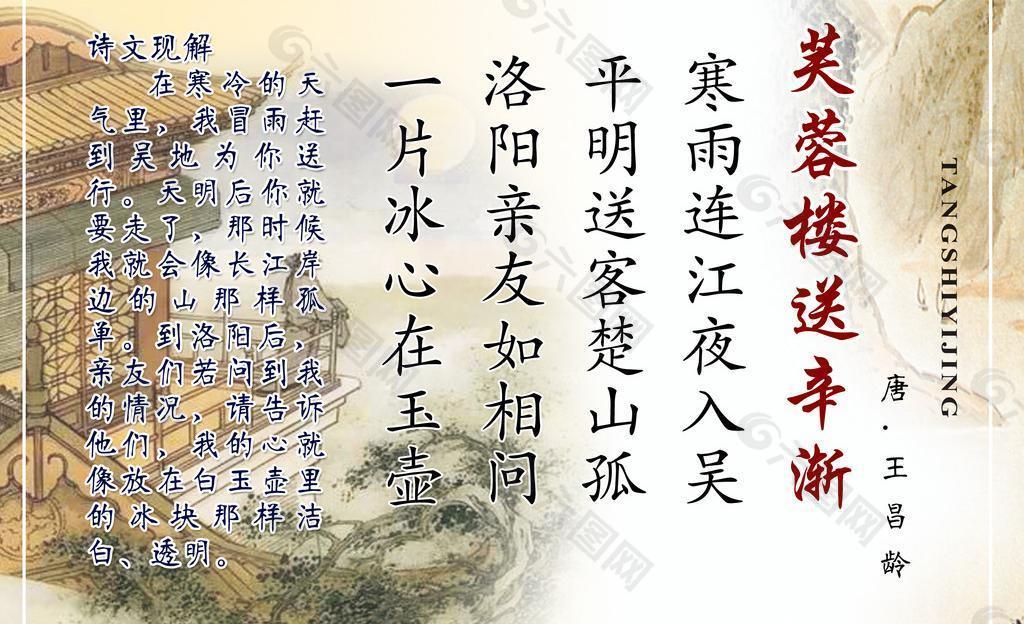 芙蓉楼送辛渐
TANGSHIYIJING
唐.王昌龄
寒雨连江夜入吴
平明送客楚山孤
洛阳亲友如相问
一片冰心在玉壶
诗文现解
在寒冷的天
气里，我冒雨赶
到吴地为你送
行。天明后你就
要走了，那时候
我就会像长江岸
边的山那样孤
单。到洛阳后，
亲友们若问到我
的情况，请告诉
他们，我的心就
像放在白玉壶里
的冰块那样洁
白、透明。
六图网